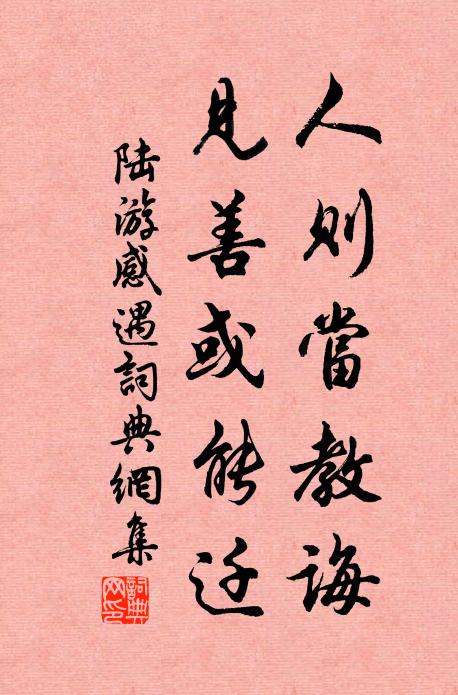 人則當教誨
見善或能迁
陸游感遇詞典網集
詞典
网印